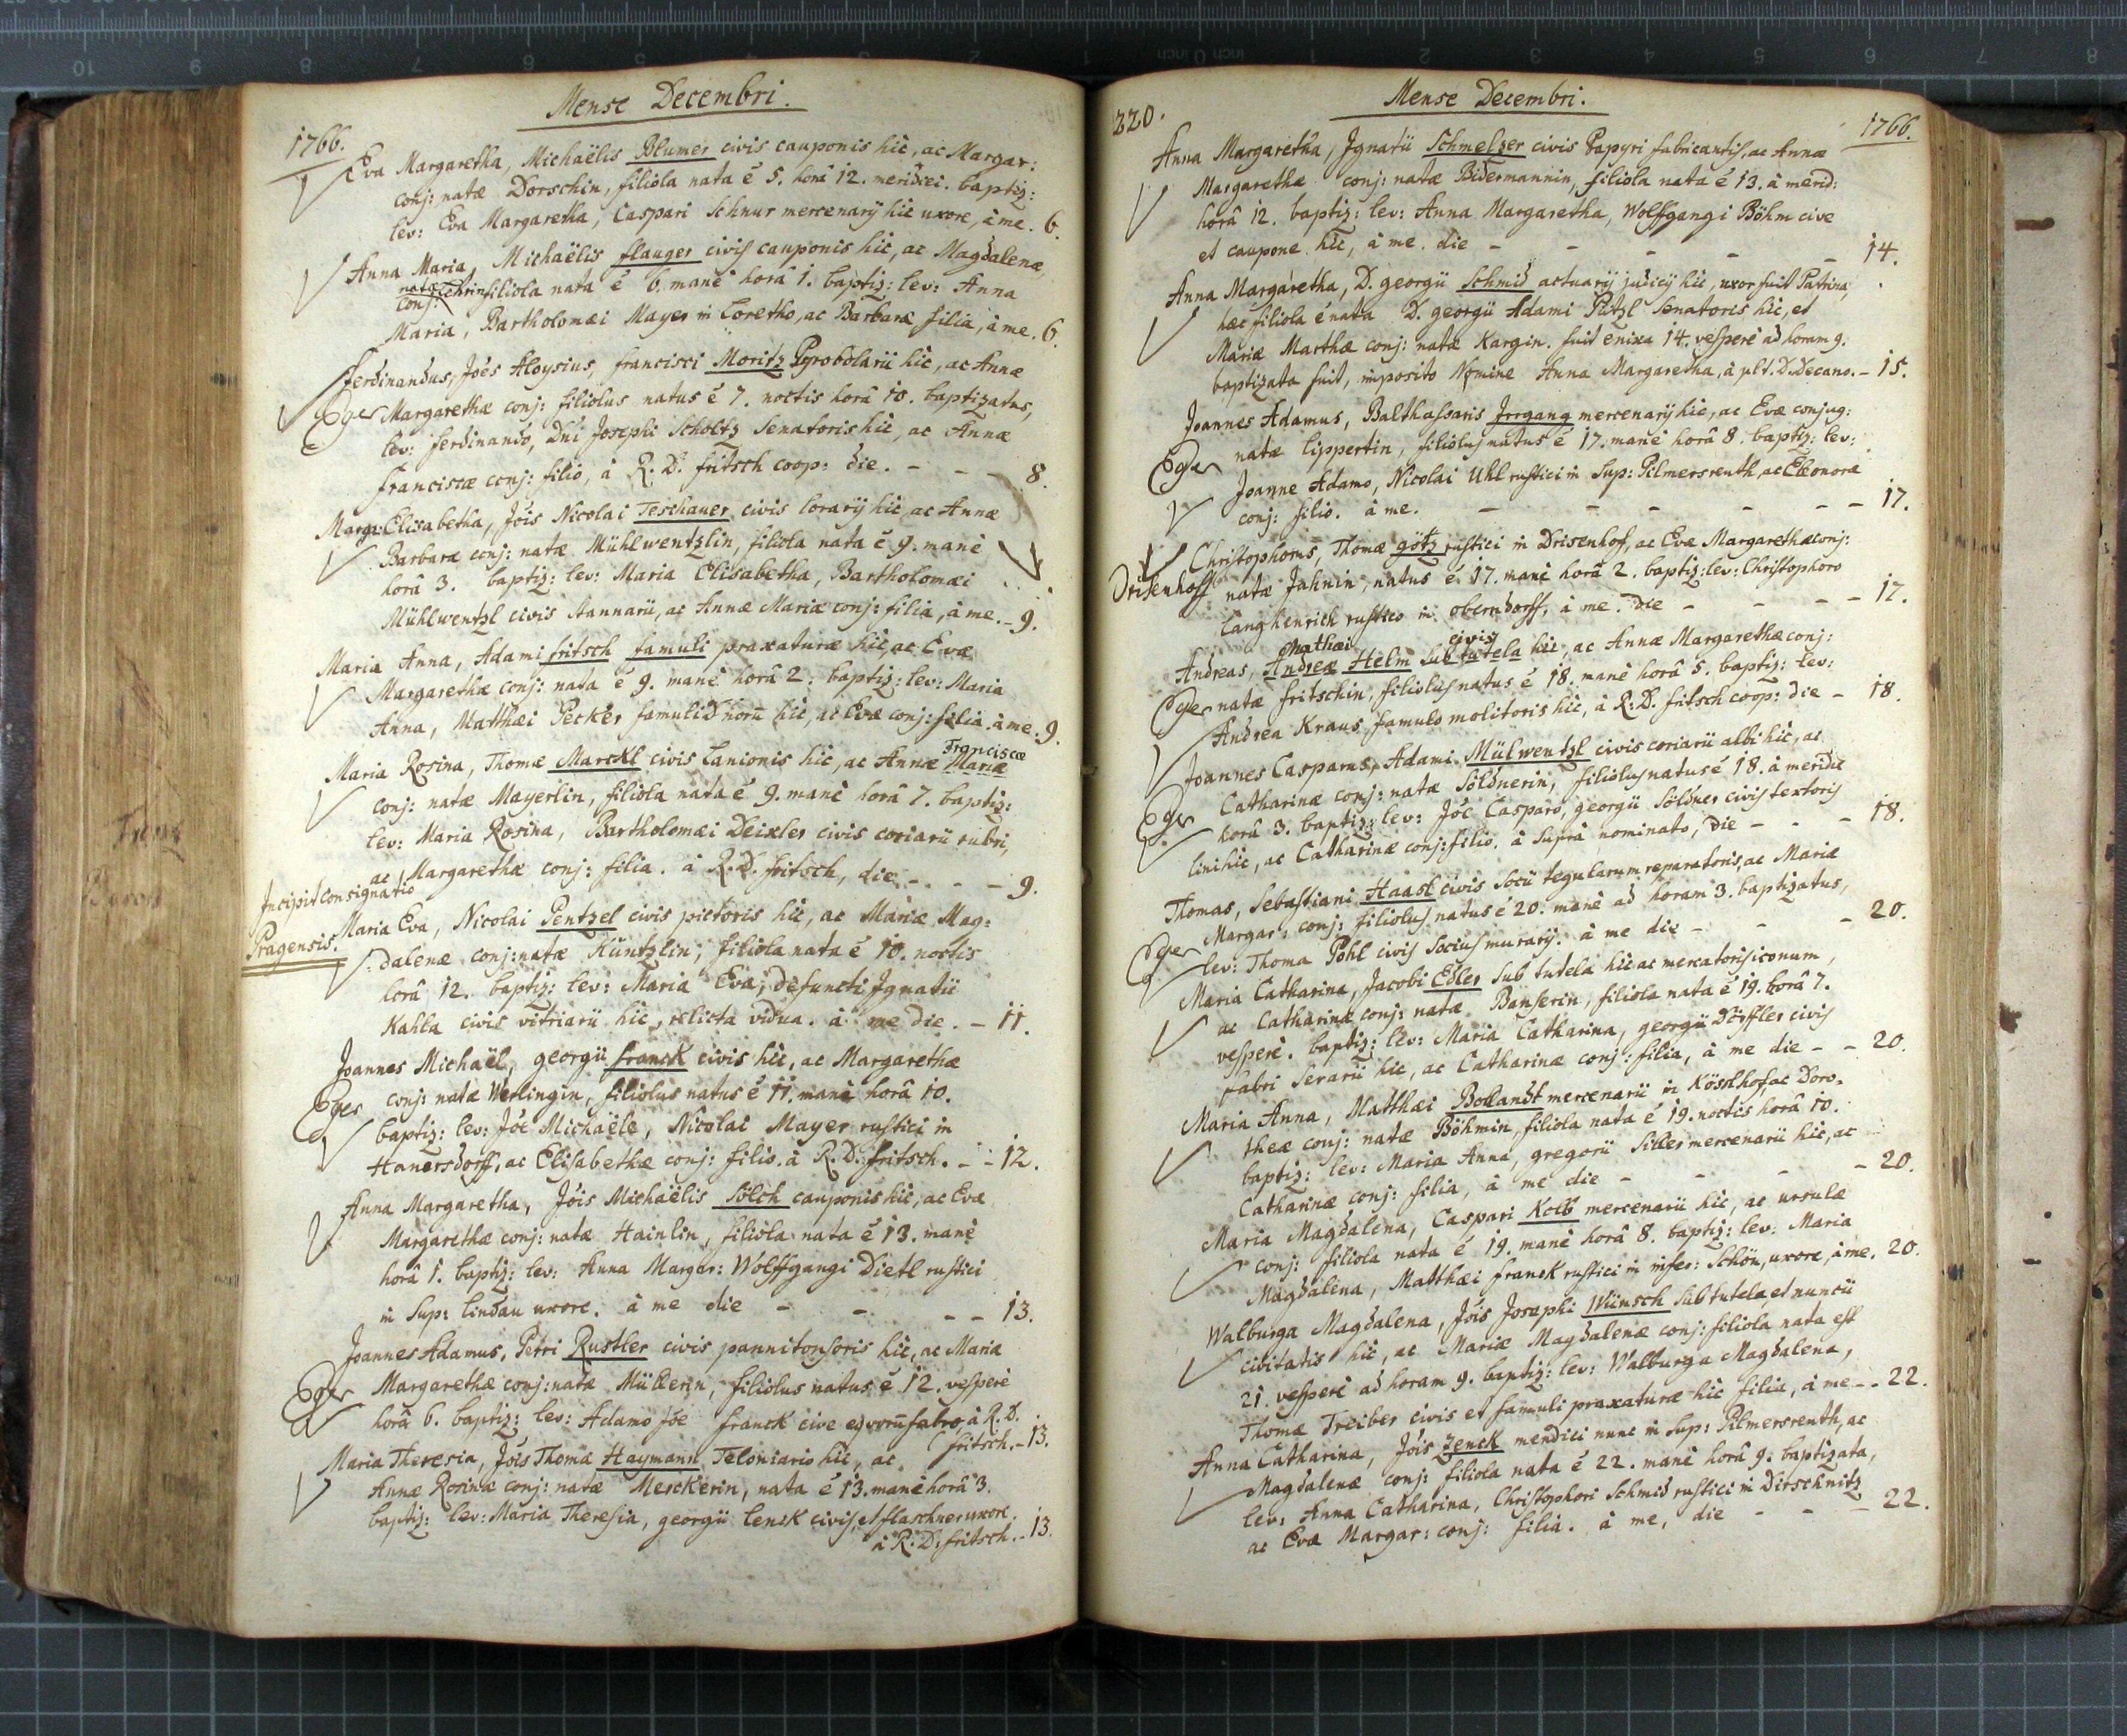 Mense Decembri.
1766.
Eva Margaretha, Michaëlis Blumer civis cauponis hic, ac Margar:
conj: natæ Dorschin, filiola nata ê 5. horâ 12. meridiei. baptiz:
lev: Eva Margaretha, Caspari Schnur mercenarÿ hic uxore, à me. 6.
Anna Maria, Michaëlis flauger civis cauponis hic, ac Magdalenæ,
conj: natæ filiola nata ê 6. manè horâ 1. baptiz: lev: Anna
Maria, Bartholomæi Mayer in Loretho, ac Barbaræ filia, à me. 6.
Ferdinandus, Jôés Aloysius, francisci Moritz Pyrobolarii hic, ac Annæ
Eger Margarethæ conj: filiolus natus ê 7. noctis horâ 10. baptizatus,
lev: ferdinando, Dni Josephi Scholtz Senatoris hic, ac Annæ
franciscæ conj: filio, à R. D. fritsch coop: die. - - - 8.
Marga: Elisabetha, Jôis Nicolai Teschauer civis lorarÿ hic, ac Annæ
Barbaræ conj: natæ Mühlwentzlin, filiola nata ê 9. manè
horâ 3. baptiz: lev: Maria Elisabetha, Bartholomæi
Mühlwentzl civis stannarii, ac Annæ Mariæ conj: filia, à me. - 9.
Maria Anna, Adami fritsch famuli praxaturæ hic, ac Evæ
Margarethæ conj: nata ê 9. manè horâ 2. baptiz: lev: Maria
Anna, Matthæi Pecker famuli hic, ac Evæ conj: filia. à me. 9.
Franciscæ
Maria Rosina, Thomæ Marckl civis lanionis hic, ac Annæ Mariæ
conj: natæ Mayerlin, filiola nata ê 9. manè horâ 7. baptiz:
lev: Maria Rosina, Bartholomæi Deixler civis coriarii rubri,
ac Margarethæ conj: filia. à R. D. fritsch, die - - - 9.
Incipit consignatio
Pragensis.
Maria Eva, Nicolai Pentzel civis pictoris hic, ac Mariæ Mag:
dalenæ conj: natæ Küntzlin, filiola nata ê 10. noctis
horâ 12. baptiz: lev: Maria Eva, defuncti Ignatii
Kahla civis vitriarii hic, relicta vidua. à me die. - 11.
Joannes Michaël, georgii franck civis hic, ac Margarethæ
Eger conj: natæ Werlingin, filiolus natus ê 11. manè horâ 10.
baptiz: lev: Jôé Michaële, Nicolai Mayer rustici in
Hanersdorff, ac Elisabethæ conj: filio. à R. D. fritsch. - - 12.
Anna Margaretha, Jôis Michaëlis Sölch cauponis hic, ac Evæ
Margarethæ conj: natæ Hainlin, filiola nata ê 13. manè
horâ 1. baptiz: lev: Anna Margar: Wolffgangi Dietl rustici
in Sup: lindau uxore. à me die - - - - 13.
Joannes Adamus, Petri Rustler civis pannitonsoris hic, ac Mariæ
Eger Margarethæ conj: natæ Müllerin, filiolus natus ê 12. vesperè
horâ 6. baptiz: lev: Adamo Jôé franck cive , à R. D.
fritsch. - 13.
Maria Theresia, Jôis Thomæ Haymann Teloniario hic, ac
Annæ Rosinæ conj: natæ Merckerin, nata ê 13. manè horâ 3.
baptiz: lev: Maria Theresia, georgii lenck civis, et flaschner uxore.
à R. D. fritsch. - 13.
220.
Mense Decembri.
1766.
Anna Margaretha, Ignatii Schmelzer civis Papyri fabricantis, ac Annæ
Margarethæ conj: natæ Bidermannin, filiola nata ê 13. à merid:
horâ 12. baptiz: lev: Anna Margaretha, Wolffgangi Böhm cive
et caupone hic, à me. die - - - - - 14.
Anna Margaretha, D. georgii Schmid actuarÿ judicÿ hic, uxor fuit Patrina,
hæc filiola ê nata D. georgii Adami Plitzl Senatoris hic, et
Mariæ Marthæ conj: natæ Kargin. fuit enixa 14. vesperè ad horam 9.
baptizata fuit, imposito Nomine Anna Margaretha, à plt. D. Decano. - 15.
Joannes Adamus, Balthassaris Irrgang mercenarÿ hic, ac Evæ conjug:
Eger natæ lippertin, filiolus natus ê 17. manè horâ 8. baptiz: lev:
Joanne Adamo, Nicolai Uhl rustici in Sup: Pilmersrenth, ac Eleonoræ
conj: filio. à me. - - - - - - 17.
Christophorus, Thomæ götz rustici in Drisenhof, ac Evæ Margarethæ conj:
Drisenhoff natæ Jahnin, natus ê 17. manè horâ 2. baptiz: lev: Christophoro
Langhenrich rustico in oberndorff, à me. die - - - - 17.
Mathæi civis
Andreas, Andreæ Helm sub tutela hic, ac Annæ Margarethæ conj:
Eger natæ fritschin, filiolus natus ê 18. manè horâ 5. baptiz: lev:
Andrea Kraus famulo molitoris hic, à R. D. fritsch coop: die - 18.
Joannes Casparus, Adami Mülwentzl civis coriarii albi hic, ac
Eger Catharinæ conj: natæ Söldnerin, filiolus natus ê 18. à meridie
horâ 3. baptiz: lev: Jôé Casparo, georgii Söldner civis textoris
lini hic, ac Catharinæ conj: filio. à suprà nominato, die - - - 18.
Thomas, Sebastiani Haasl civis socii tegularum reparatoris, ac Mariæ
Margar: conj: filiolus natus ê 20. manè ad horam 3. baptizatus,
Eger lev: Thoma Pöhl civis socius murarÿ. à me die - - - 20.
Maria Catharina, Jacobi Edler sub tutela hic ac mercatoris iconum,
ac Catharinæ conj: natæ Banserin, filiola nata ê 19. horâ 7.
vesperè. baptiz: lev: Maria Catharina, georgii Döffler civis
fabri serarii hic, ac Catharinæ conj: filia, à me die - - 20.
Maria Anna, Matthæi Bollandt mercenarii in Kösslhof, ac Doro-
theæ conj: natæ Böhmin, filiola nata ê 19. noctis horâ 10.
baptiz: lev: Maria Anna, gregorii Siller mercenarii hic, ac
Catharinæ conj: filia, à me die - - - - 20.
Maria Magdalena, Caspari Kolb mercenarii hic, ac ursulæ
conj: filiola nata ê 19. manè horâ 8. baptiz: lev: Maria
Magdalena, Matthæi franck rustici in infer: Schön, uxore, à me. 20.
Walburga Magdalena, Jôis Josephi Wünsch sub tutela, et nuncii
civitatis hic, ac Mariæ Magdalenæ conj: filiola nata est
21. vesperè ad horam 9. baptiz: lev: Walburga Magdalena,
Thomæ Treiber civis et famuli praxaturæ hic filia, à me - - 22.
Anna Catharina, Jôis Zenck mendici nunc in Sup: Pilmersrenth, ac
Magdalenæ conj: filiola nata ê 22. manè horâ 9. baptizata,
lev: Anna Catharina, Christophori Schmid rustici in Dirschnitz
ac Evæ Margar: conj: filia. à me, die - - - 22.